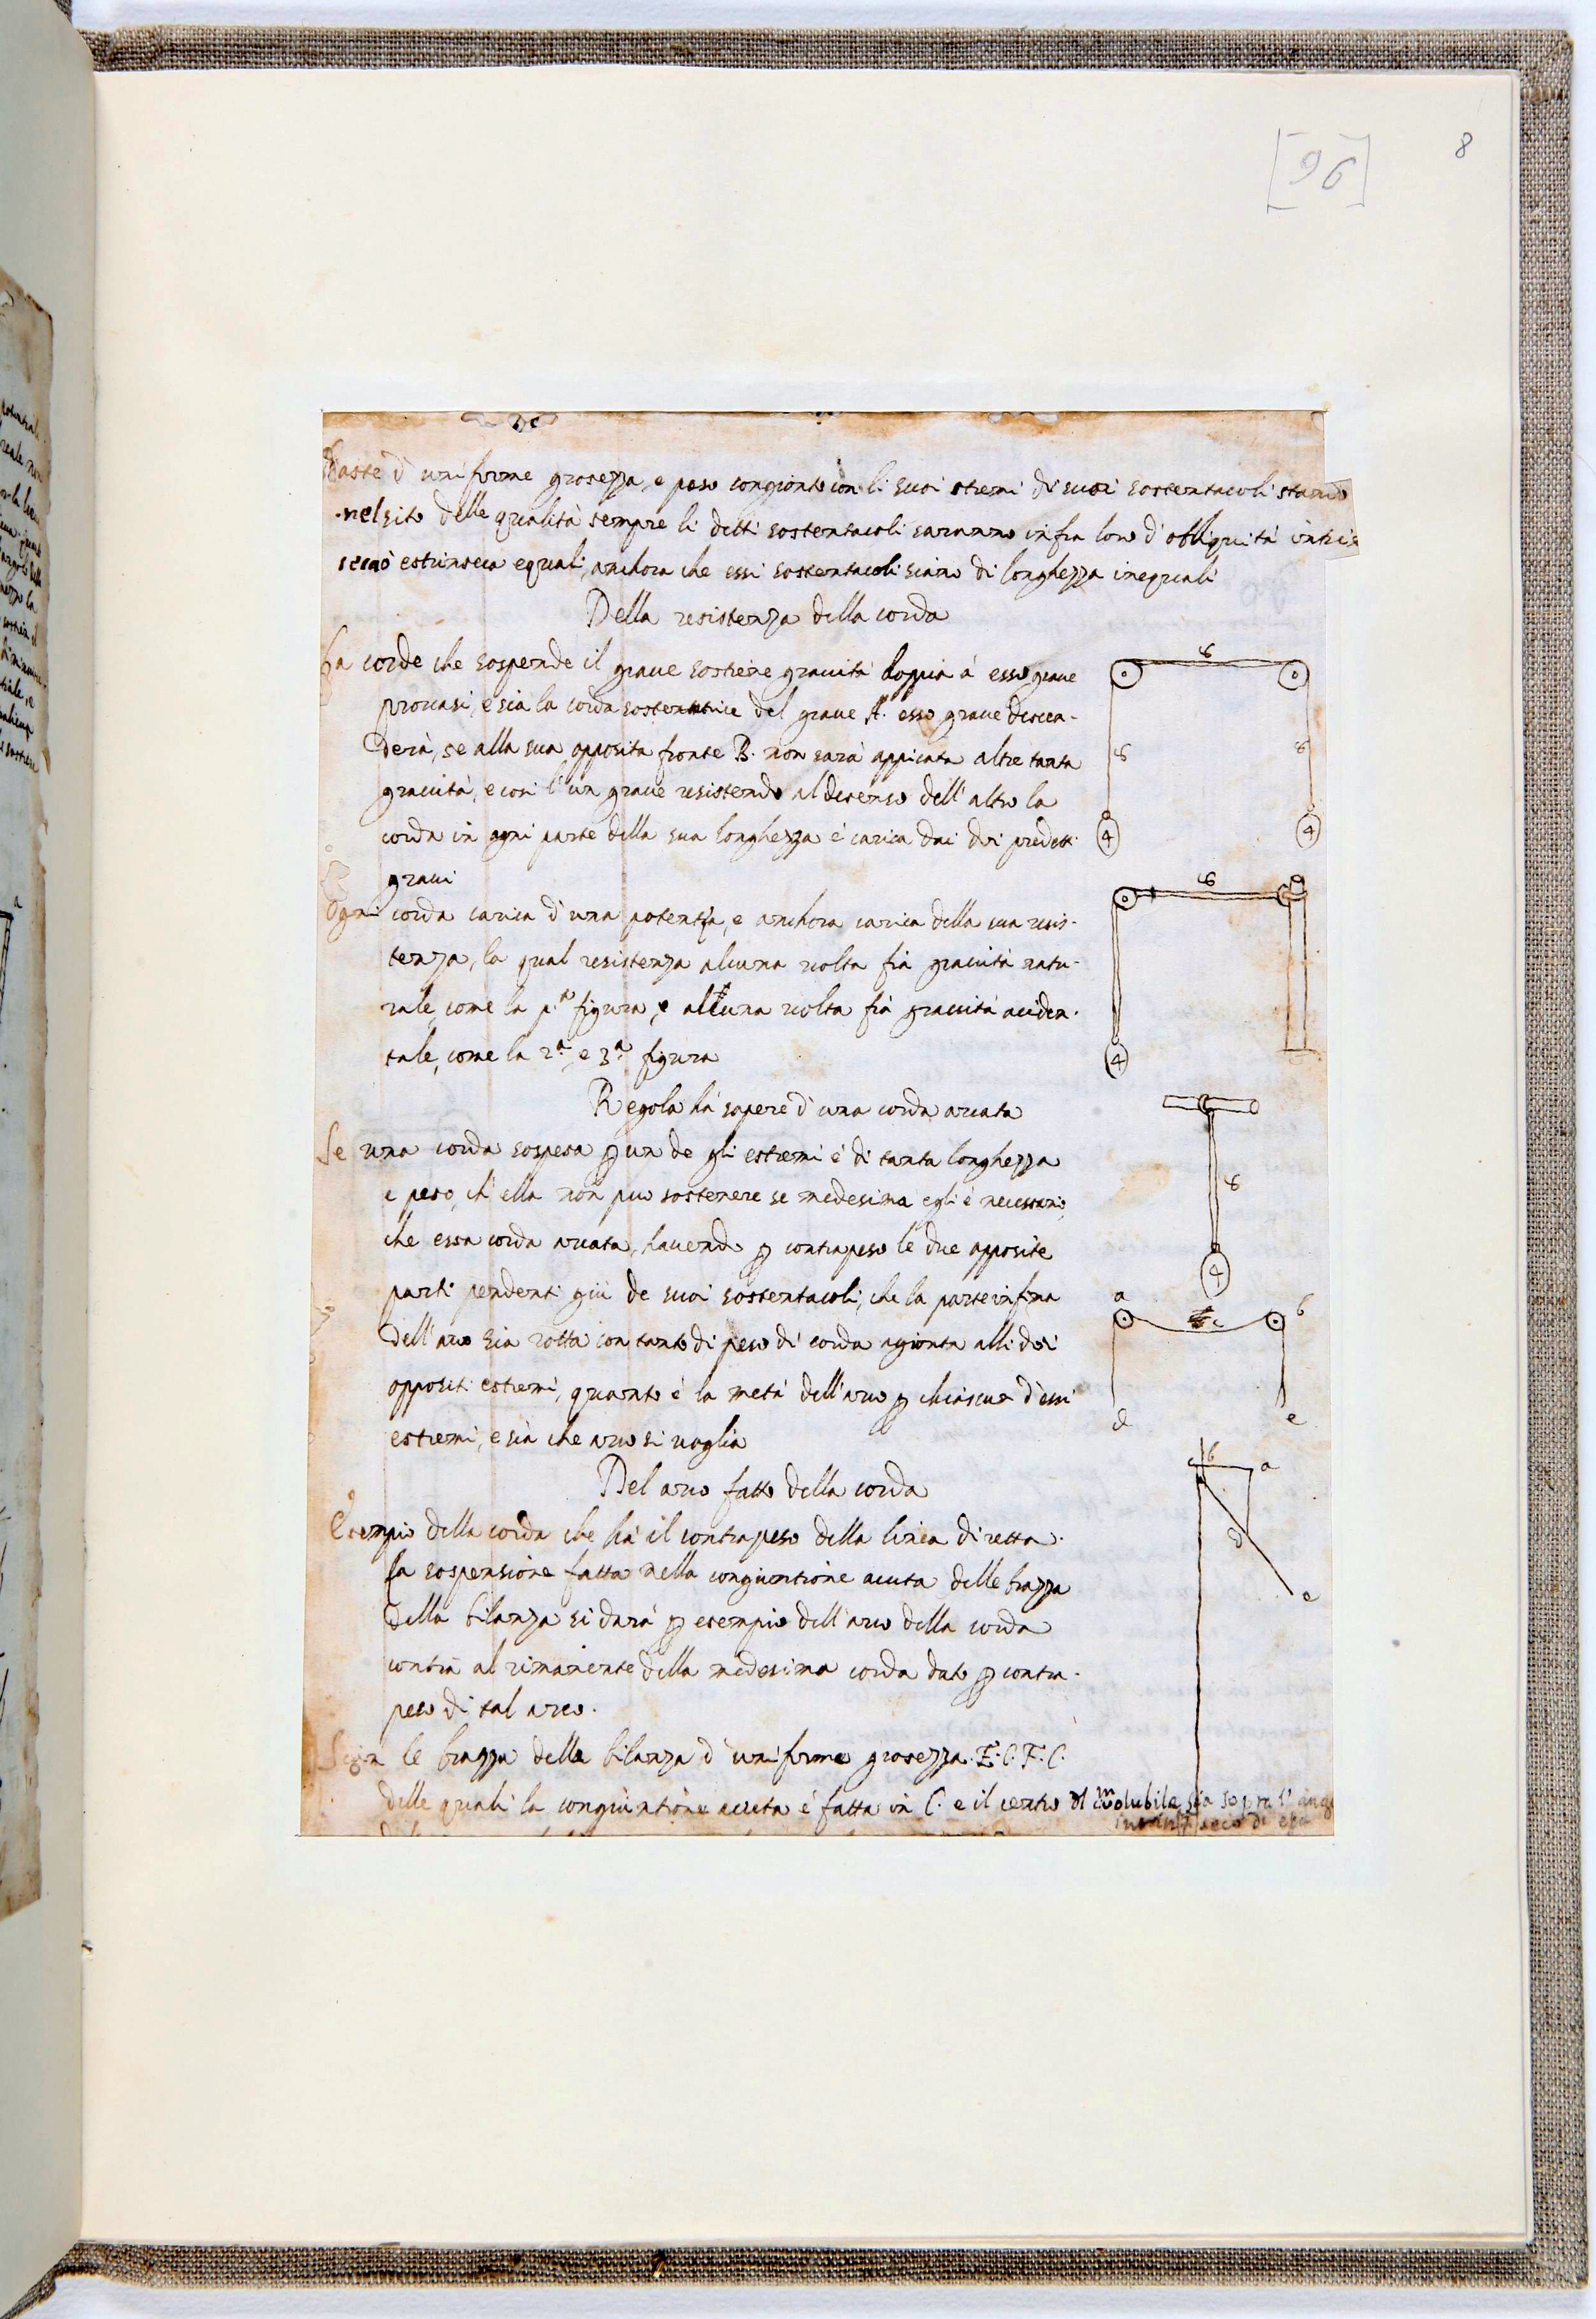 8
[96]
haste d' uniforme grosezza, e peso congionto con li suoi stremi di suoi sostentacoli stando
nel sito delle qualità sempre li detti sostentacoli saranno infra loro d' obliquità intrin
seca ò estrinseca equali, anchora che essi sostentacoli siano di longhezza inequali
Della resistenza della corda
La corde che sospende il graue sostiene grauità doppia à esso graue
prouasi, e sia la corda sostentatrice del graue A. esso graue discen-
derà, se alla sua opposita fronte B. non sarà appicata altre tanta
grauità, e cosi l' un graue resistendo al decenso dell' altro la
corda in ogni parte della sua longhezza è carica dai doi predetti
graui
Ogni corda carica d' una potentia, e anchora carica della sua resis-
tenza, la qual resistenza alcuna uolta fia grauità natu-
rale, come la p.ª figura, e alcuna uolta fia grauità acciden-
tale, come la 2.ª e 3.ª figura
Regola hà sapere d' una corda arcata
Se una corda sospesa p un de gli estremi è di tanta longhezza
e peso, ch' ella non puo sostenere se medesima egli è necessario,
che essa corda arcata, hauendo p contrapeso le due opposite
parti pendenti giù de suoi sostentacoli, che la parte infima
dell' arco sia rotta con tanto di peso di corda agionta alli doi
oppositi estremi, quanto è la metà dell' arco p chiascua d' essi
estremi, e sia che arco si uoglia
Del arco fatto della corda
Esempio della corda che hà il contrapeso della linea diretta.
La sospensione fatta nella congiuntione acuta delle brazza
della bilanza si darà p esempio dell' arco della corda
contra al rimanente della medesima corda dato p contra-
peso di tal arco.
Sian le brazza della bilanza d' uniforme grosezza. E. C. F. C.
delle quali la congiuntione acuta è fatta in C. e il centro dl Volubile sia sopra l' ang
intrinseco di essa
8
8
8
4
4
8
4
8
4
a
b
c
d
e
b
a
d
e